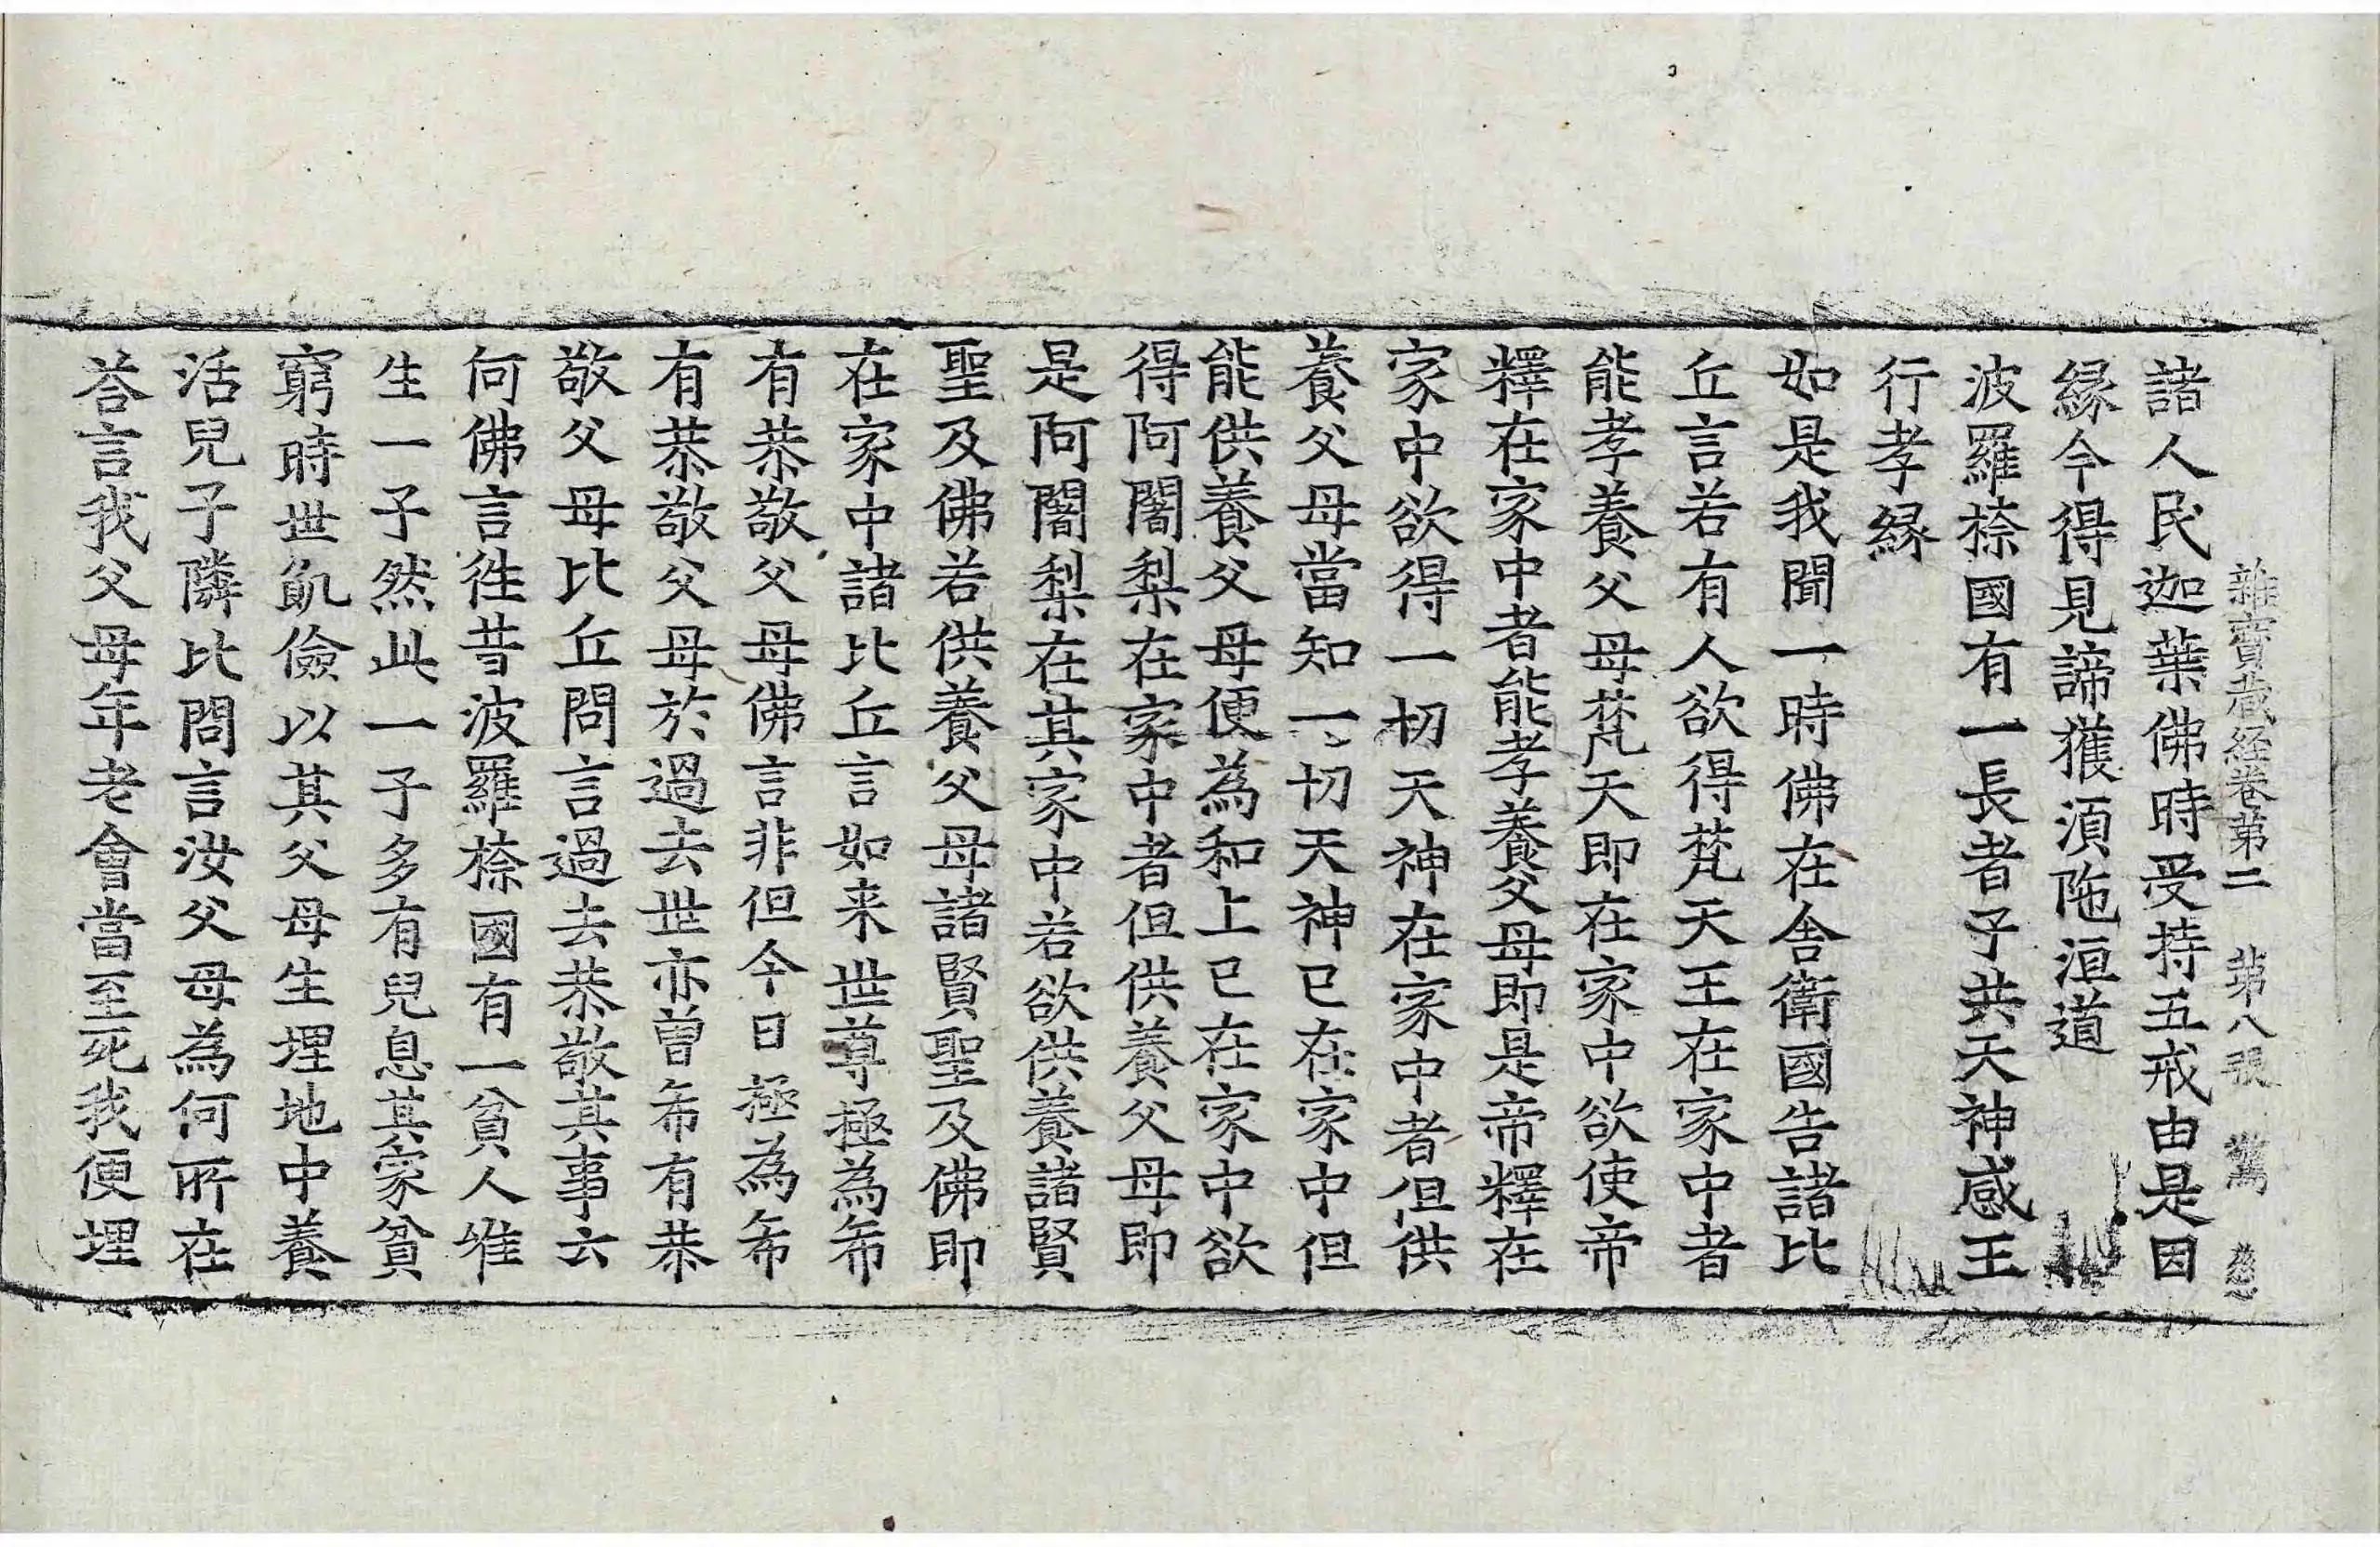 雜寶蔵経卷第二 第八張 驚
諸人民迦葉佛時受持五戒由是因
縁今得見諦獲湏陁洹道
波羅㮈國有一長者子共天神感王
行孝縁
如是我聞一時佛在舎衛國告諸比
丘言若有人欲得梵天王在家中者
能孝養父母梵天即在家中欲使帝
釋在家中者能孝養父母即是帝釋在
家中欲得一切天神在家中者但供
養父母當知一切天神已在家中但
能供養父母便為和上已在家中欲
得阿闍梨在家中者但供養父母即
是阿闍梨在其家中若欲供養諸賢
聖及佛若供養父母諸賢聖及佛即
在家中諸比丘言如来世尊極為希
有恭敬父母佛言非但今日極為希
有恭敬父母於過去世亦曾希有恭
敬父母比丘問言過去恭敬其事云
何佛言徃昔波羅㮈國有一貧人唯
生一子然此一子多有兒息其家貧
窮時世飢儉以其父母生埋地中養
活兒子隣比問言汝父母為何所在
荅言我父母年老會當至死我便埋